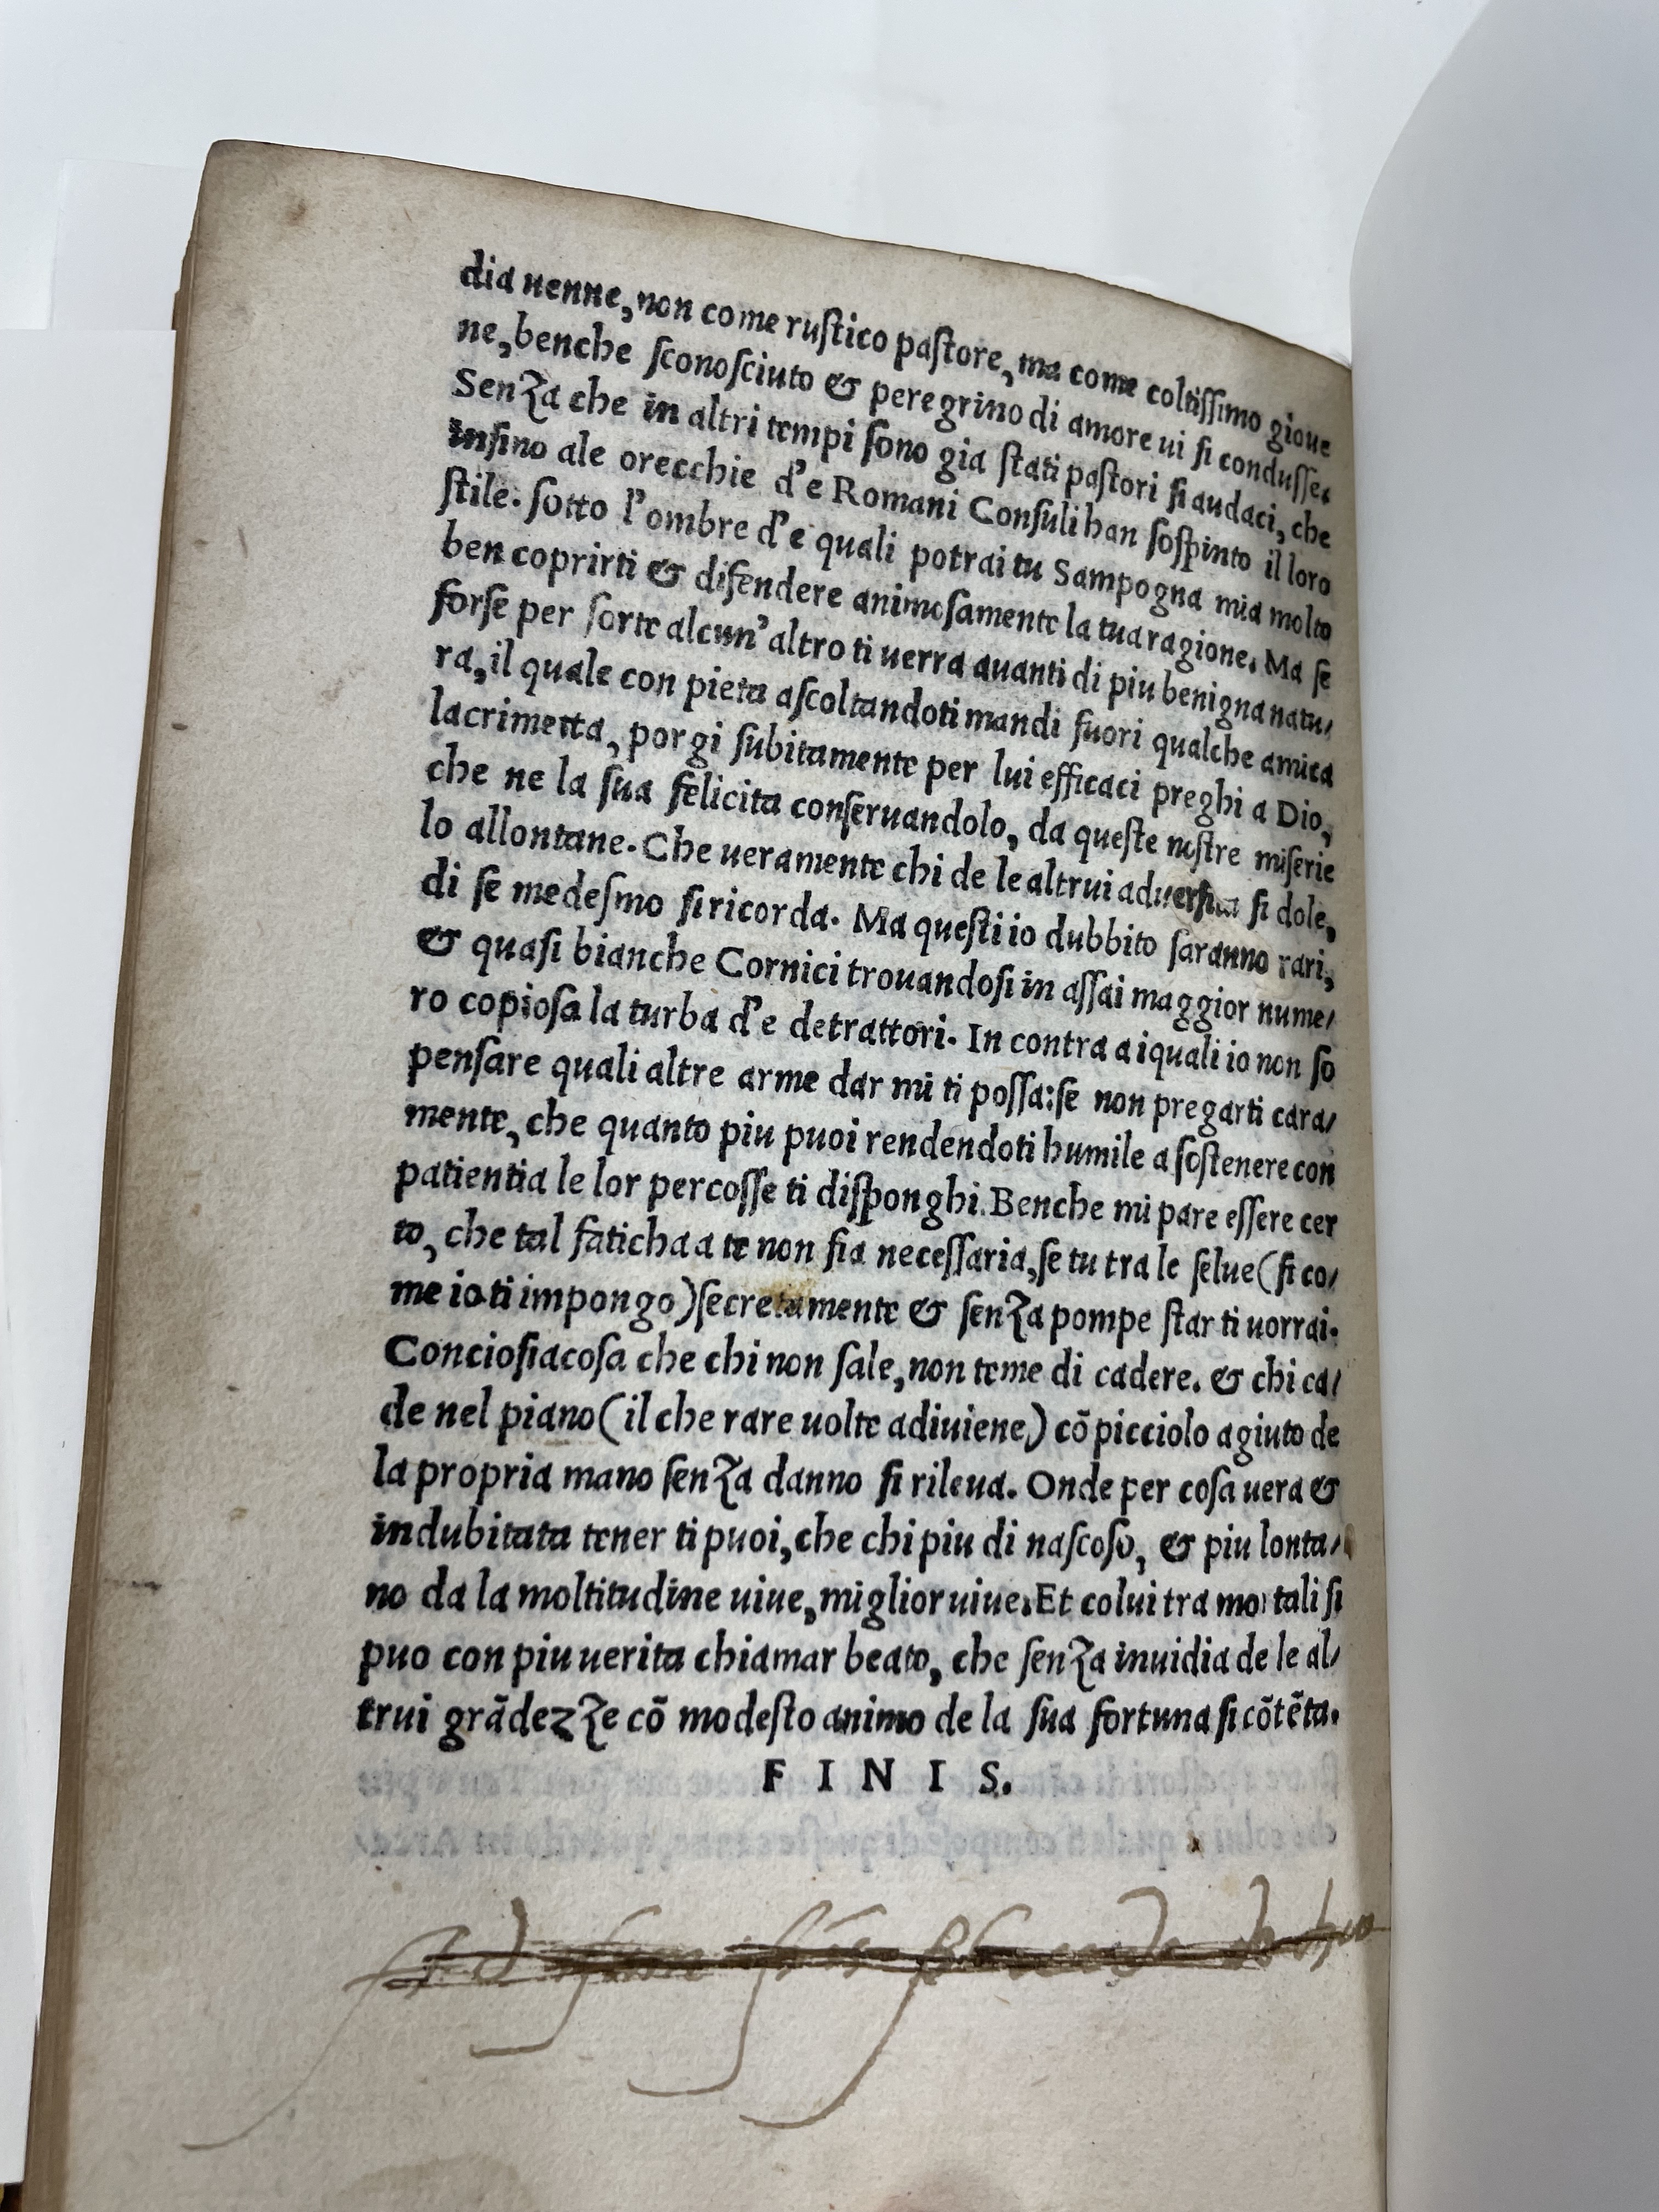 dia uenne, non come ruſtico paſtore, ma come coltiſſimo gioue
ne, benche ſconoſciuto & peregrino di amore ui ſi conduſſe.
Senza che in altri tempi ſono gia ſtati paſtori ſi audaci, che
inſino ale orecchie d'e Romani Conſuli han ſoſpinto il loro
ſtile. ſotto l'ombre d'e quali potrai tu Sampogna mia molto
ben coprirti & difendere animoſamente la tua ragione. Ma ſe
forſe per ſorte alcun'altro ti uerra auanti di piu benigna natu/
ra, il quale con pieta aſcoltandoti mandi fuori qualche amica
lacrimetta, porgi ſubitamente per lui efficaci preghi a Dio,
che ne la ſua felicita conſeruandolo, da queſte noſtre miſerie
lo allontane. Che ueramente chi de le altrui ſi dole,
di ſe medeſmo ſi ricorda. Ma queſti io dubbito ſaranno rari,
& quaſi bianche Cornici trouandoſi in aſſai maggior nume/
ro copioſa la turba d'e detrattori. In contra a i quali io non ſo
penſare quali altre arme dar mi ti poſſa: ſe non pregarti cara/
mente, che quanto piu puoi rendendoti humile a ſoſtenere con
patientia le lor percoſſe ti diſponghi. Benche mi pare eſſere cer
to, che tal faticha a te non ſia neceſſaria, ſe tu tra le ſelue (ſi co/
me io ti impongo) ſecretamente & ſenza pompe ſtar ti uorrai.
Concioſiacoſa che chi non ſale, non teme di cadere. & chi ca/
de nel piano (il che rare uolte adiuiene) cō picciolo agiuto de
la propria mano ſenza danno ſi rileua. Onde per coſa uera &
indubitata tener ti puoi, che chi piu di naſcoſo, & piu lonta/
no da la moltitudine uiue, miglior uiue. Et colui tra mortali ſi
puo con piu uerita chiamar beato, che ſenza inuidia de le al/
trui grādezze cō modeſto animo de la ſua fortuna ſi cōtēta.
FINIS.